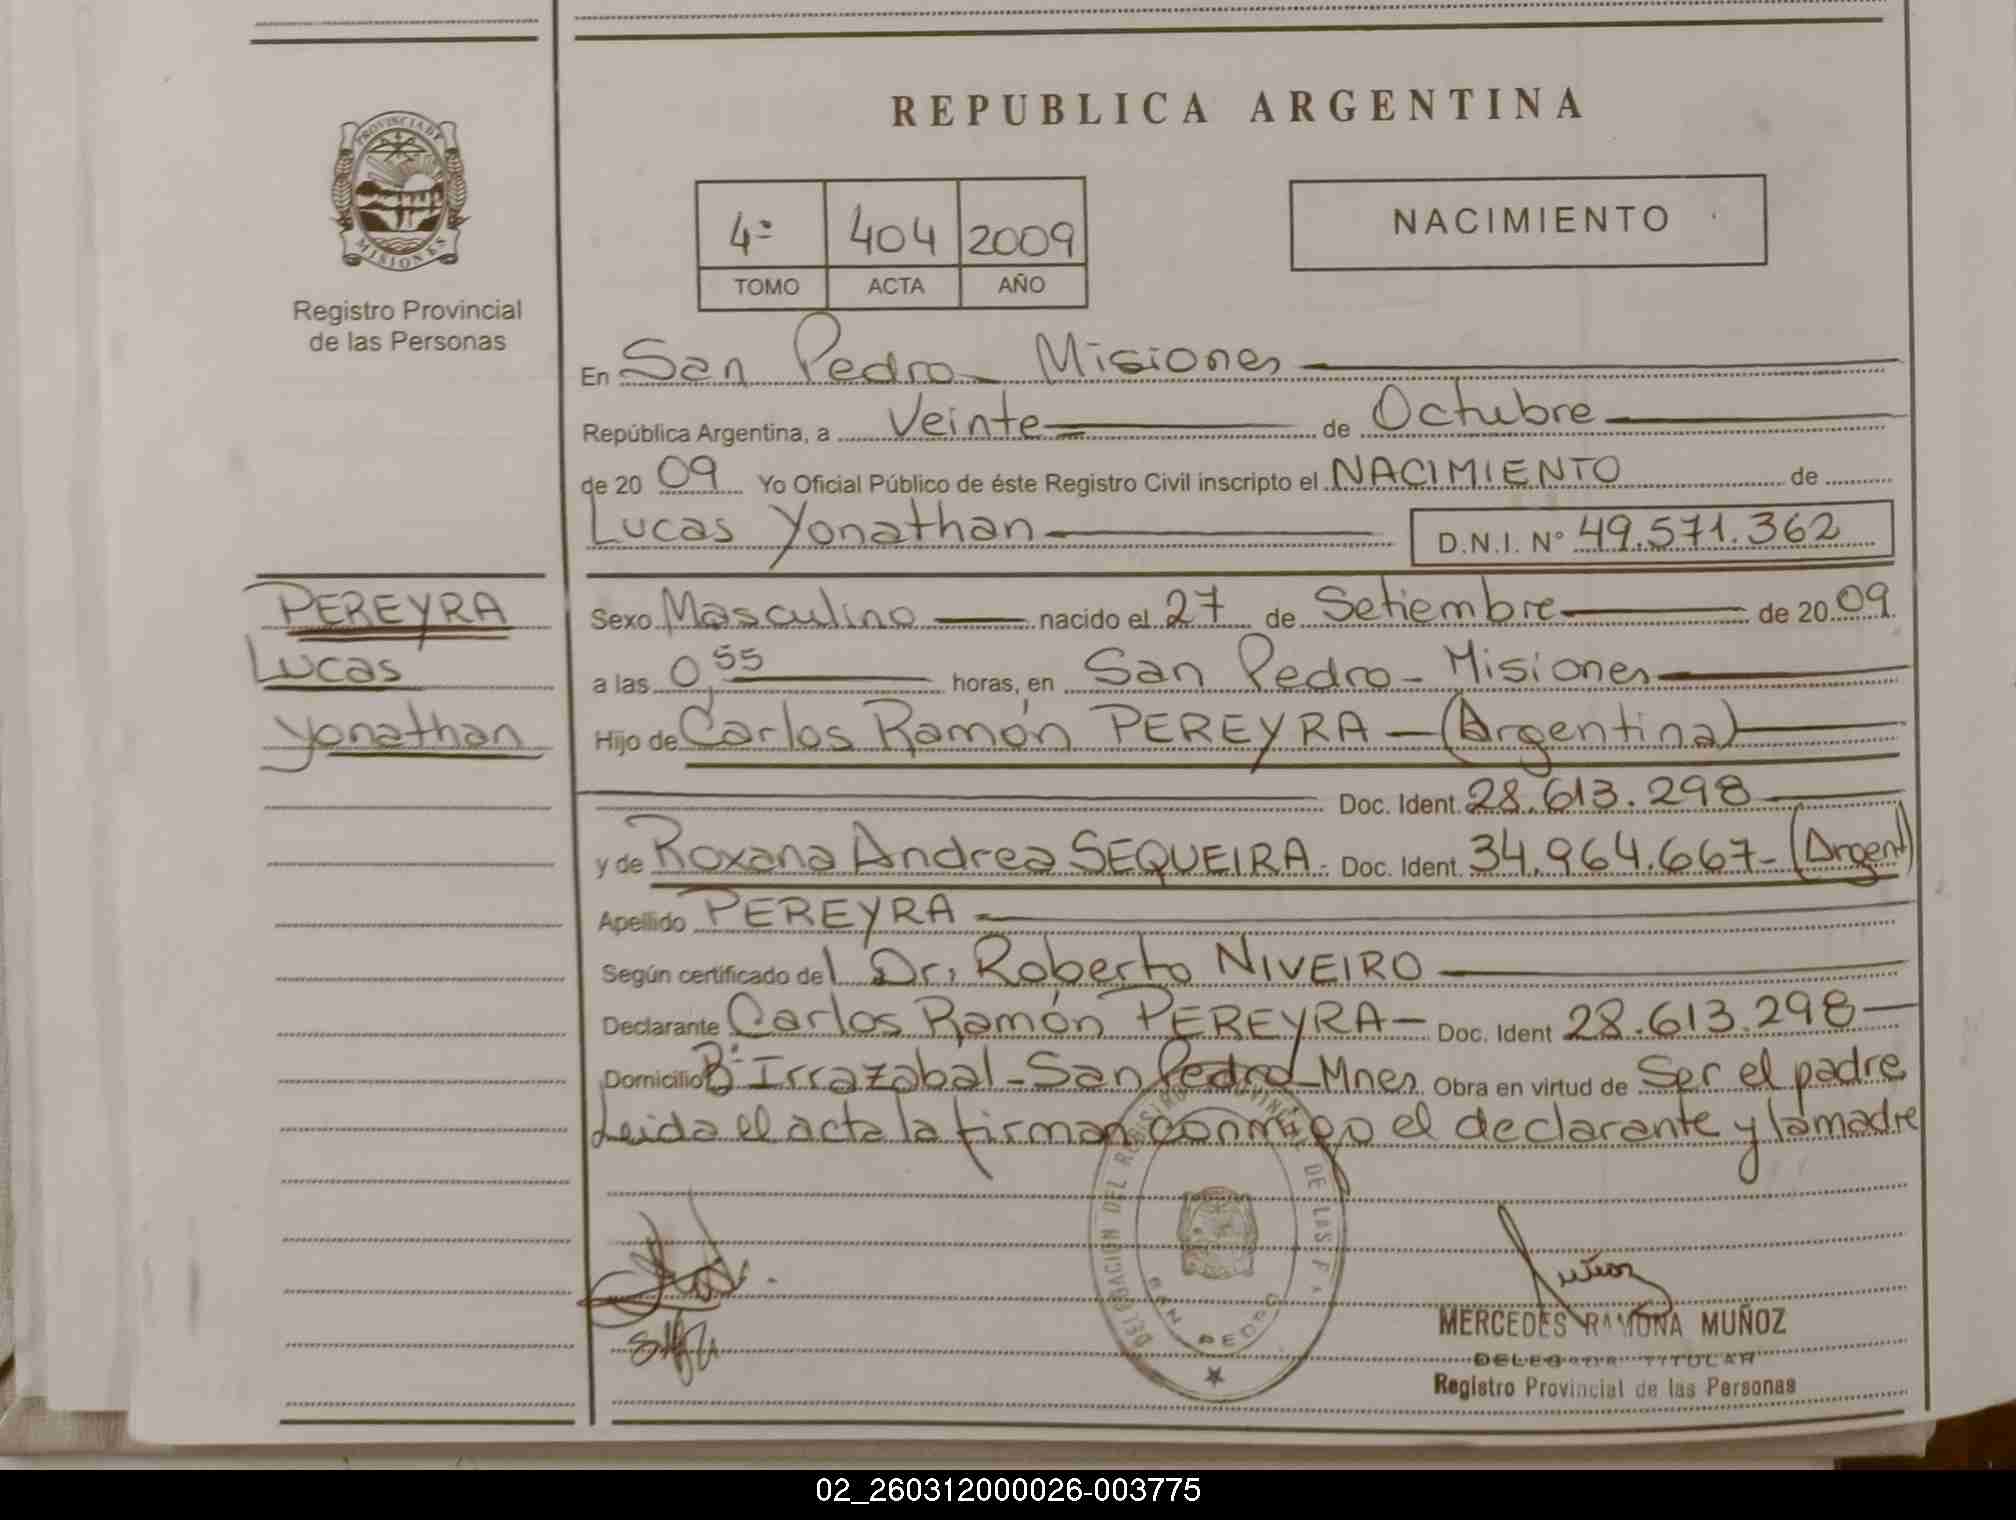 REPUBLICA ARGENTINA
PROVINCIA DE
MISIONES
Registro Provincial
de las Personas
4º 404 2009
TOMO ACTA AÑO
NACIMIENTO
En San Pedro - Misiones
República Argentina, a Veinte de Octubre
de 2009 Yo Oficial Público de éste Registro Civil inscripto el NACIMIENTO de
Lucas Yonathan D.N.I. Nº 49.571.362
PEREYRA
Lucas
Yonathan
Sexo Masculino nacido el 27 de Setiembre de 2009
a las 0,55 horas, en San Pedro - Misiones
Hijo de Carlos Ramón PEREYRA - (Argentina)
Doc. Ident. 28.613.298
y de Roxana Andrea SEQUEIRA. Doc. Ident. 34.964.667- (Argent)
Apellido PEREYRA
Según certificado del Dr. Roberto NIVEIRO
Declarante Carlos Ramón PEREYRA - Doc. Ident 28.613.298
Domicilio Bº Irrazabal - San Pedro - Mnes. Obra en virtud de Ser el padre
Leida el acta la firman conmigo el declarante y la madre
DELEGACION DEL REGISTRO PROVINCIAL DE LAS P
SAN PEDRO
Muñoz
MERCEDES RAMONA MUÑOZ
DELEGADA TITULAR
Registro Provincial de las Personas
02_260312000026-003775